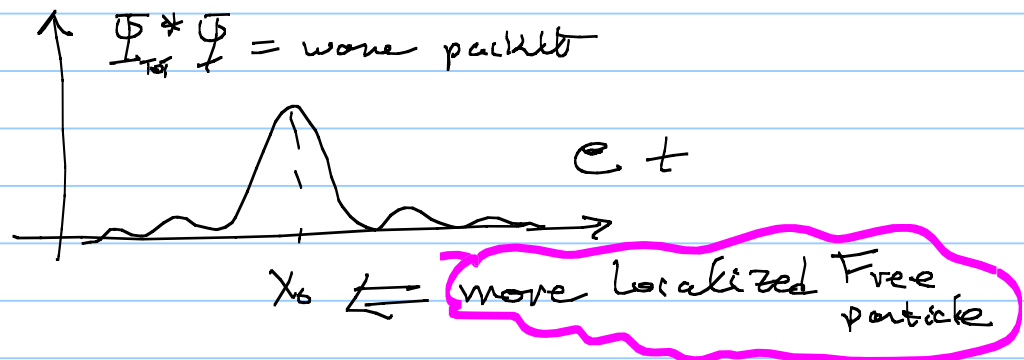 Ψ*Ψ = wave packet
Tot
e t
X₀ ⇐ more Localized Free
particle